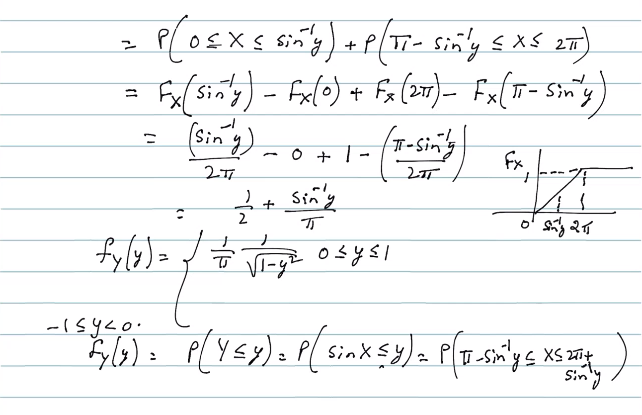 = P( 0 ≤ X ≤ sin⁻¹y ) + P( π - sin⁻¹y ≤ X ≤ 2π )
= F_X( sin⁻¹y ) - F_X(0) + F_X(2π) - F_X( π - sin⁻¹y )
= (sin⁻¹y)/2π - 0 + 1 - ( (π - sin⁻¹y)/2π )
= 1/2 + sin⁻¹y/π
F_X
1
0 sin⁻¹y 2π
f_Y(y) = { 1/π 1/√(1-y²) 0 ≤ y ≤ 1
-1 ≤ y < 0.
f_Y(y) = P( Y ≤ y ) = P( sin X ≤ y ) = P( π - sin⁻¹y ≤ X ≤ 2π + sin⁻¹y )